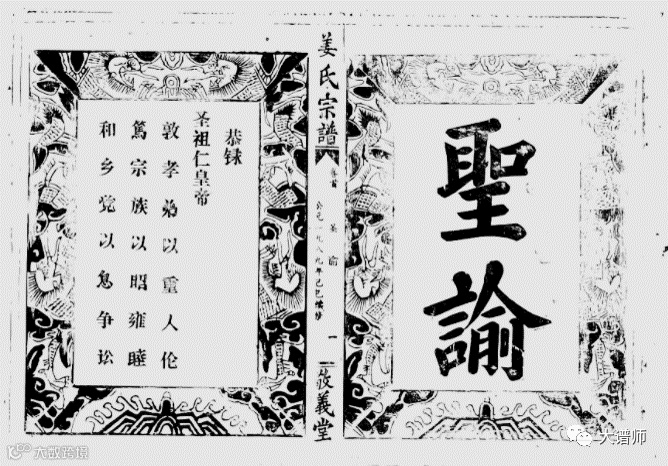 聖諭
姜氏宗譜
卷首
聖諭
公元一九八九年己巳續修
一
敦義堂
恭録
圣祖仁皇帝
敦孝弟以重人伦
篤宗族以昭雍睦
和乡党以息争讼
大谱师
大数跨境